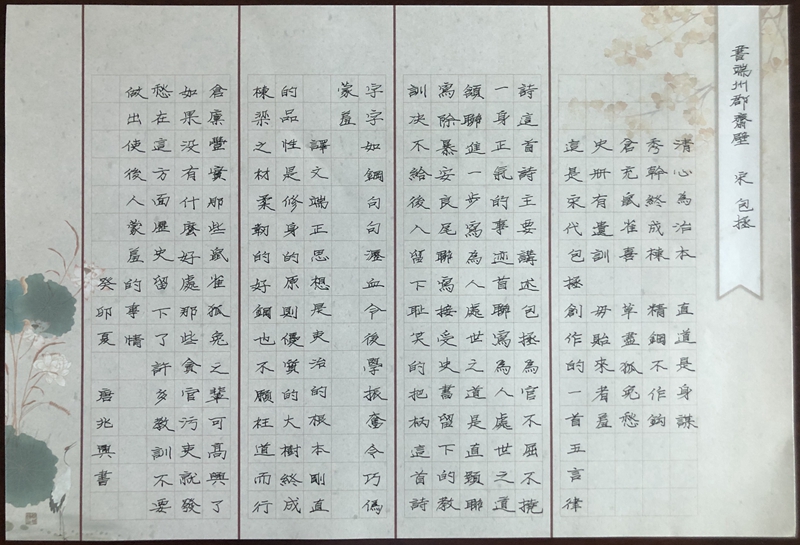 書端州郡齋壁 宋 包拯
清心為治本 直道是身謀
秀幹終成棟 精鋼不作鈎
倉充鼠雀喜 草盡狐兔愁
史冊有遺訓 毋貽來者羞
這是宋代包拯創作的一首五言律
詩這首詩主要講述包拯為官不屈不撓
一身正氣的事迹首聯寫為人處世之道
頷聯進一步寫為人處世之道是直頸聯
寫除暴安良尾聯寫接受史書留下的教
訓決不給後人留下耻笑的把柄這首詩
字字如鋼句句瀝血令後學振奮令巧偽
蒙羞
譯文端正思想是吏治的根本剛直
的品性是修身的原則優質的大樹終成
棟梁之材柔韌的好鋼也不願枉道而行
倉廩豐實那些鼠雀狐兔之輩可高興了
如果沒有什麼好處那些貪官污吏就發
愁在這方面歷史留下了許多教訓不要
做出使後人蒙羞的事情
癸卯夏 唐兆興書